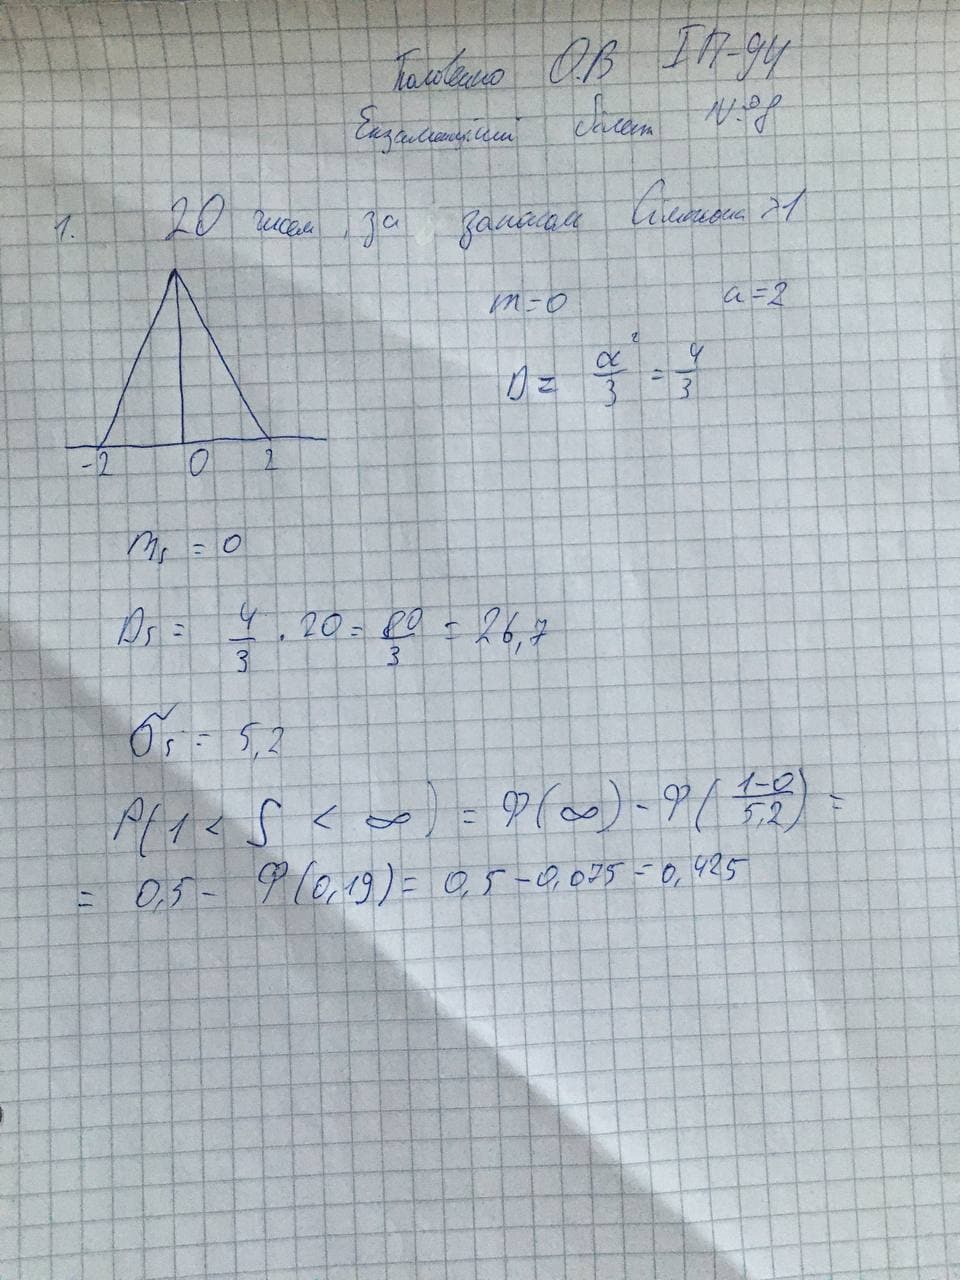 О.В ІП-94
Екзаменаційний білет №8
1. 20 чисел, за законом Сімпсона >1
m=0 a=2
D = a²/3 = 4/3
-2 0 2
m_s = 0
D_s = 4/3 · 20 = 80/3 = 26,7
σ_s = 5,2
P(1 < S < ∞) = Φ(∞) - Φ((1-0)/5,2) =
= 0,5 - Φ(0,19) = 0,5 - 0,075 = 0,425